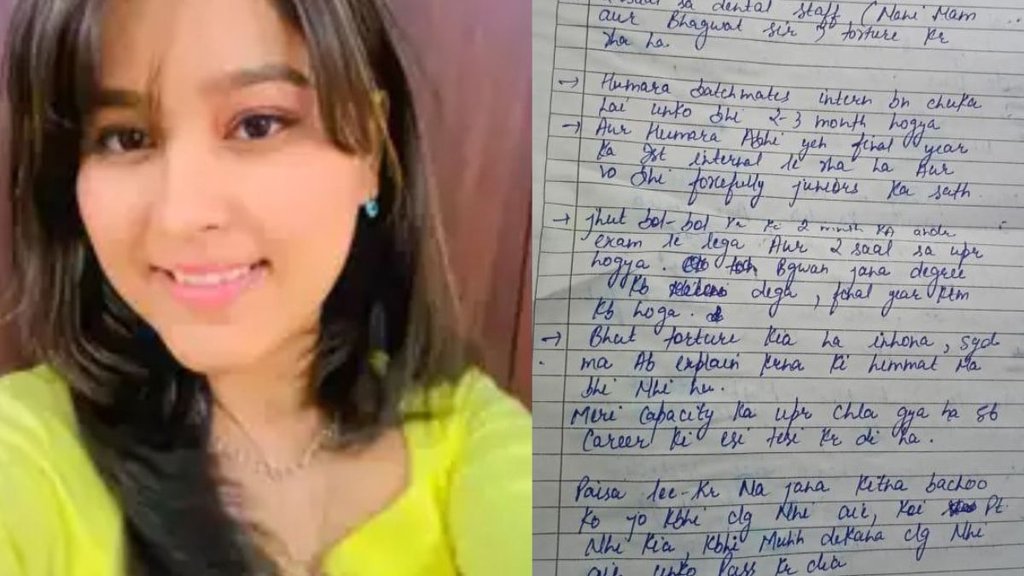 sa dental staff (Mahi Mam
aur Bhagwat Sir ने torture kr
rha ha
→ Humara batchmates intern bn chuka
hai unko bhi 2-3 month hogya
→ Aur Humara Abhi yeh final year
ka 1st internal le rha ha Aur
vo bhi forcefully juniors ka sath
→ jhut bol-bol kr ki 2 month ka andr
exam le lega Aur 2 saal sa upr
hogya. Bgwan jana degree
Kb dega, final year khtm
Kb hoga.
→ Bhut torture Kia ha inhona, Syd
ma Ab explain krna ki himmat Na
bhi Nhi hu.
Meri Capacity ka upr Chla gya ha Sb
Career Ki esi tesi kr di ha.
Paisa lee-Kr Na jana Kitna bachoo
Ko jo Kbhi clg Nhi air, Koi Pt.
Nhi Kia, Kbhi Muhh dikana clg Nhi
air unko Pass Kr dia